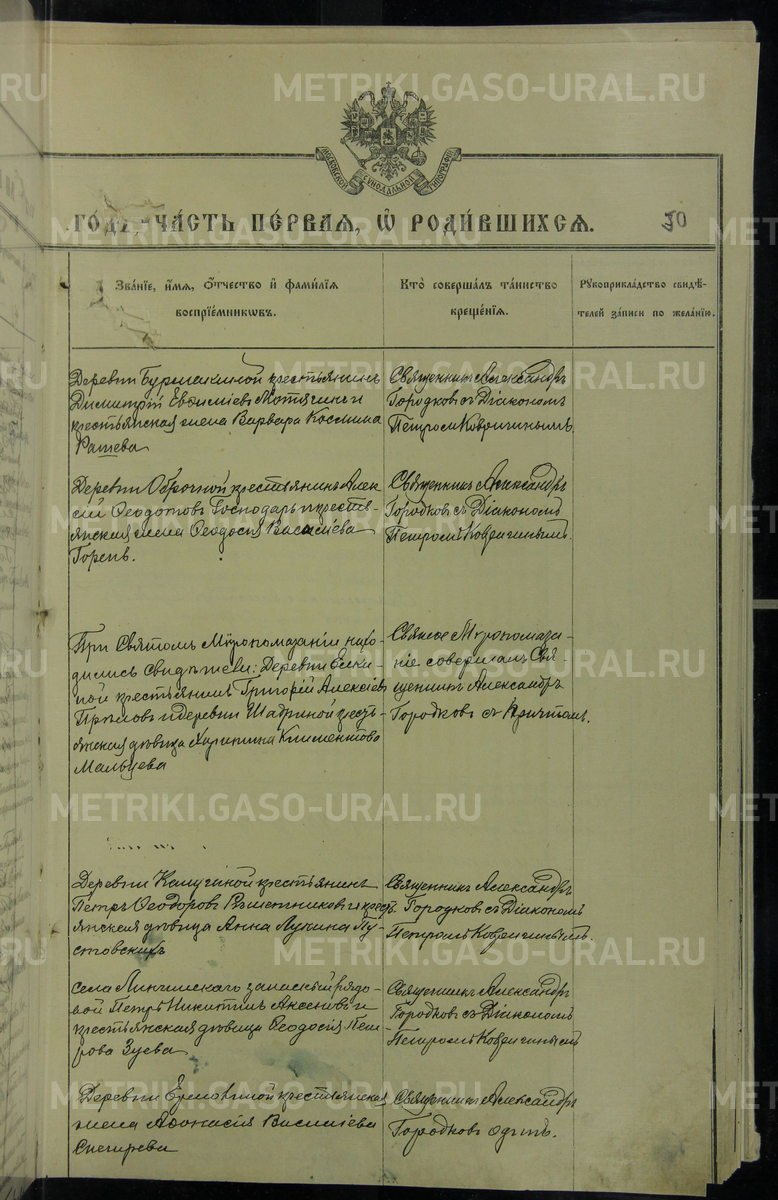 METRIKI.GASO-URAL.RU
МОСКОВСКОЙ СѴНОДАЛЬНОЙ ТИПОГРАФІИ
ГОДЪ, ЧА́СТЬ ПЕ́РВАЯ, Ѽ РОДИ́ВШИХСЯ.
30
Зва́нїе, и́мя, о́тчество и̂ фами́лїя воспрїе́мникωвъ.
Кто̀ соверша́лъ та́инство креще́нїя.
Рукоприкла́дство свидѣ́телей за́писи по жела́нїю.
Деревни Бурмакиной крестьянинъ
Димитрій Евѳиміевъ Мотягинъ и
крестьянская жена Варвара Космина
Рашева
Священникъ Александръ
Городковъ съ Діакономъ
Петромъ Ковригинымъ.
Деревни Оброчной крестьянинъ Алек-
сій Ѳеодотовъ Господарь и кресть-
янская жена Ѳеодосія Васильева
Горенъ.
Священникъ Александръ
Городковъ съ Діакономъ
Петромъ Ковригинымъ.
При Святомъ Мѵропомазаніи нахо-
дились свидѣтели: Деревни Елки-
ной крестьянинъ Григорій Алексіевъ
и деревни Шадриной кресть-
янская дѣвица Харитина Климентова
Мальцева
Святое Мѵропомаза-
ніе совершалъ Свя-
щенникъ Александръ
Городковъ съ Причтомъ.
Деревни крестьянинъ
Петръ Ѳеодоровъ Рѣшетниковъ и крест-
янская дѣвица Анна Лукина Пу-
стовскихъ
Священникъ Александръ
Городковъ съ Діакономъ
Петромъ Ковригинымъ.
Села запасный рядо-
вой Петръ Никитинъ Аксеновъ и
крестьянская дѣвица Ѳеодосія Пет-
рова Зуева
Священникъ Александръ
Городковъ съ Діакономъ
Петромъ Ковригинымъ
Деревни крестьянская
жена Аѳанасія Василіева
Снегирева
Священникъ Александръ
Городковъ одинъ.